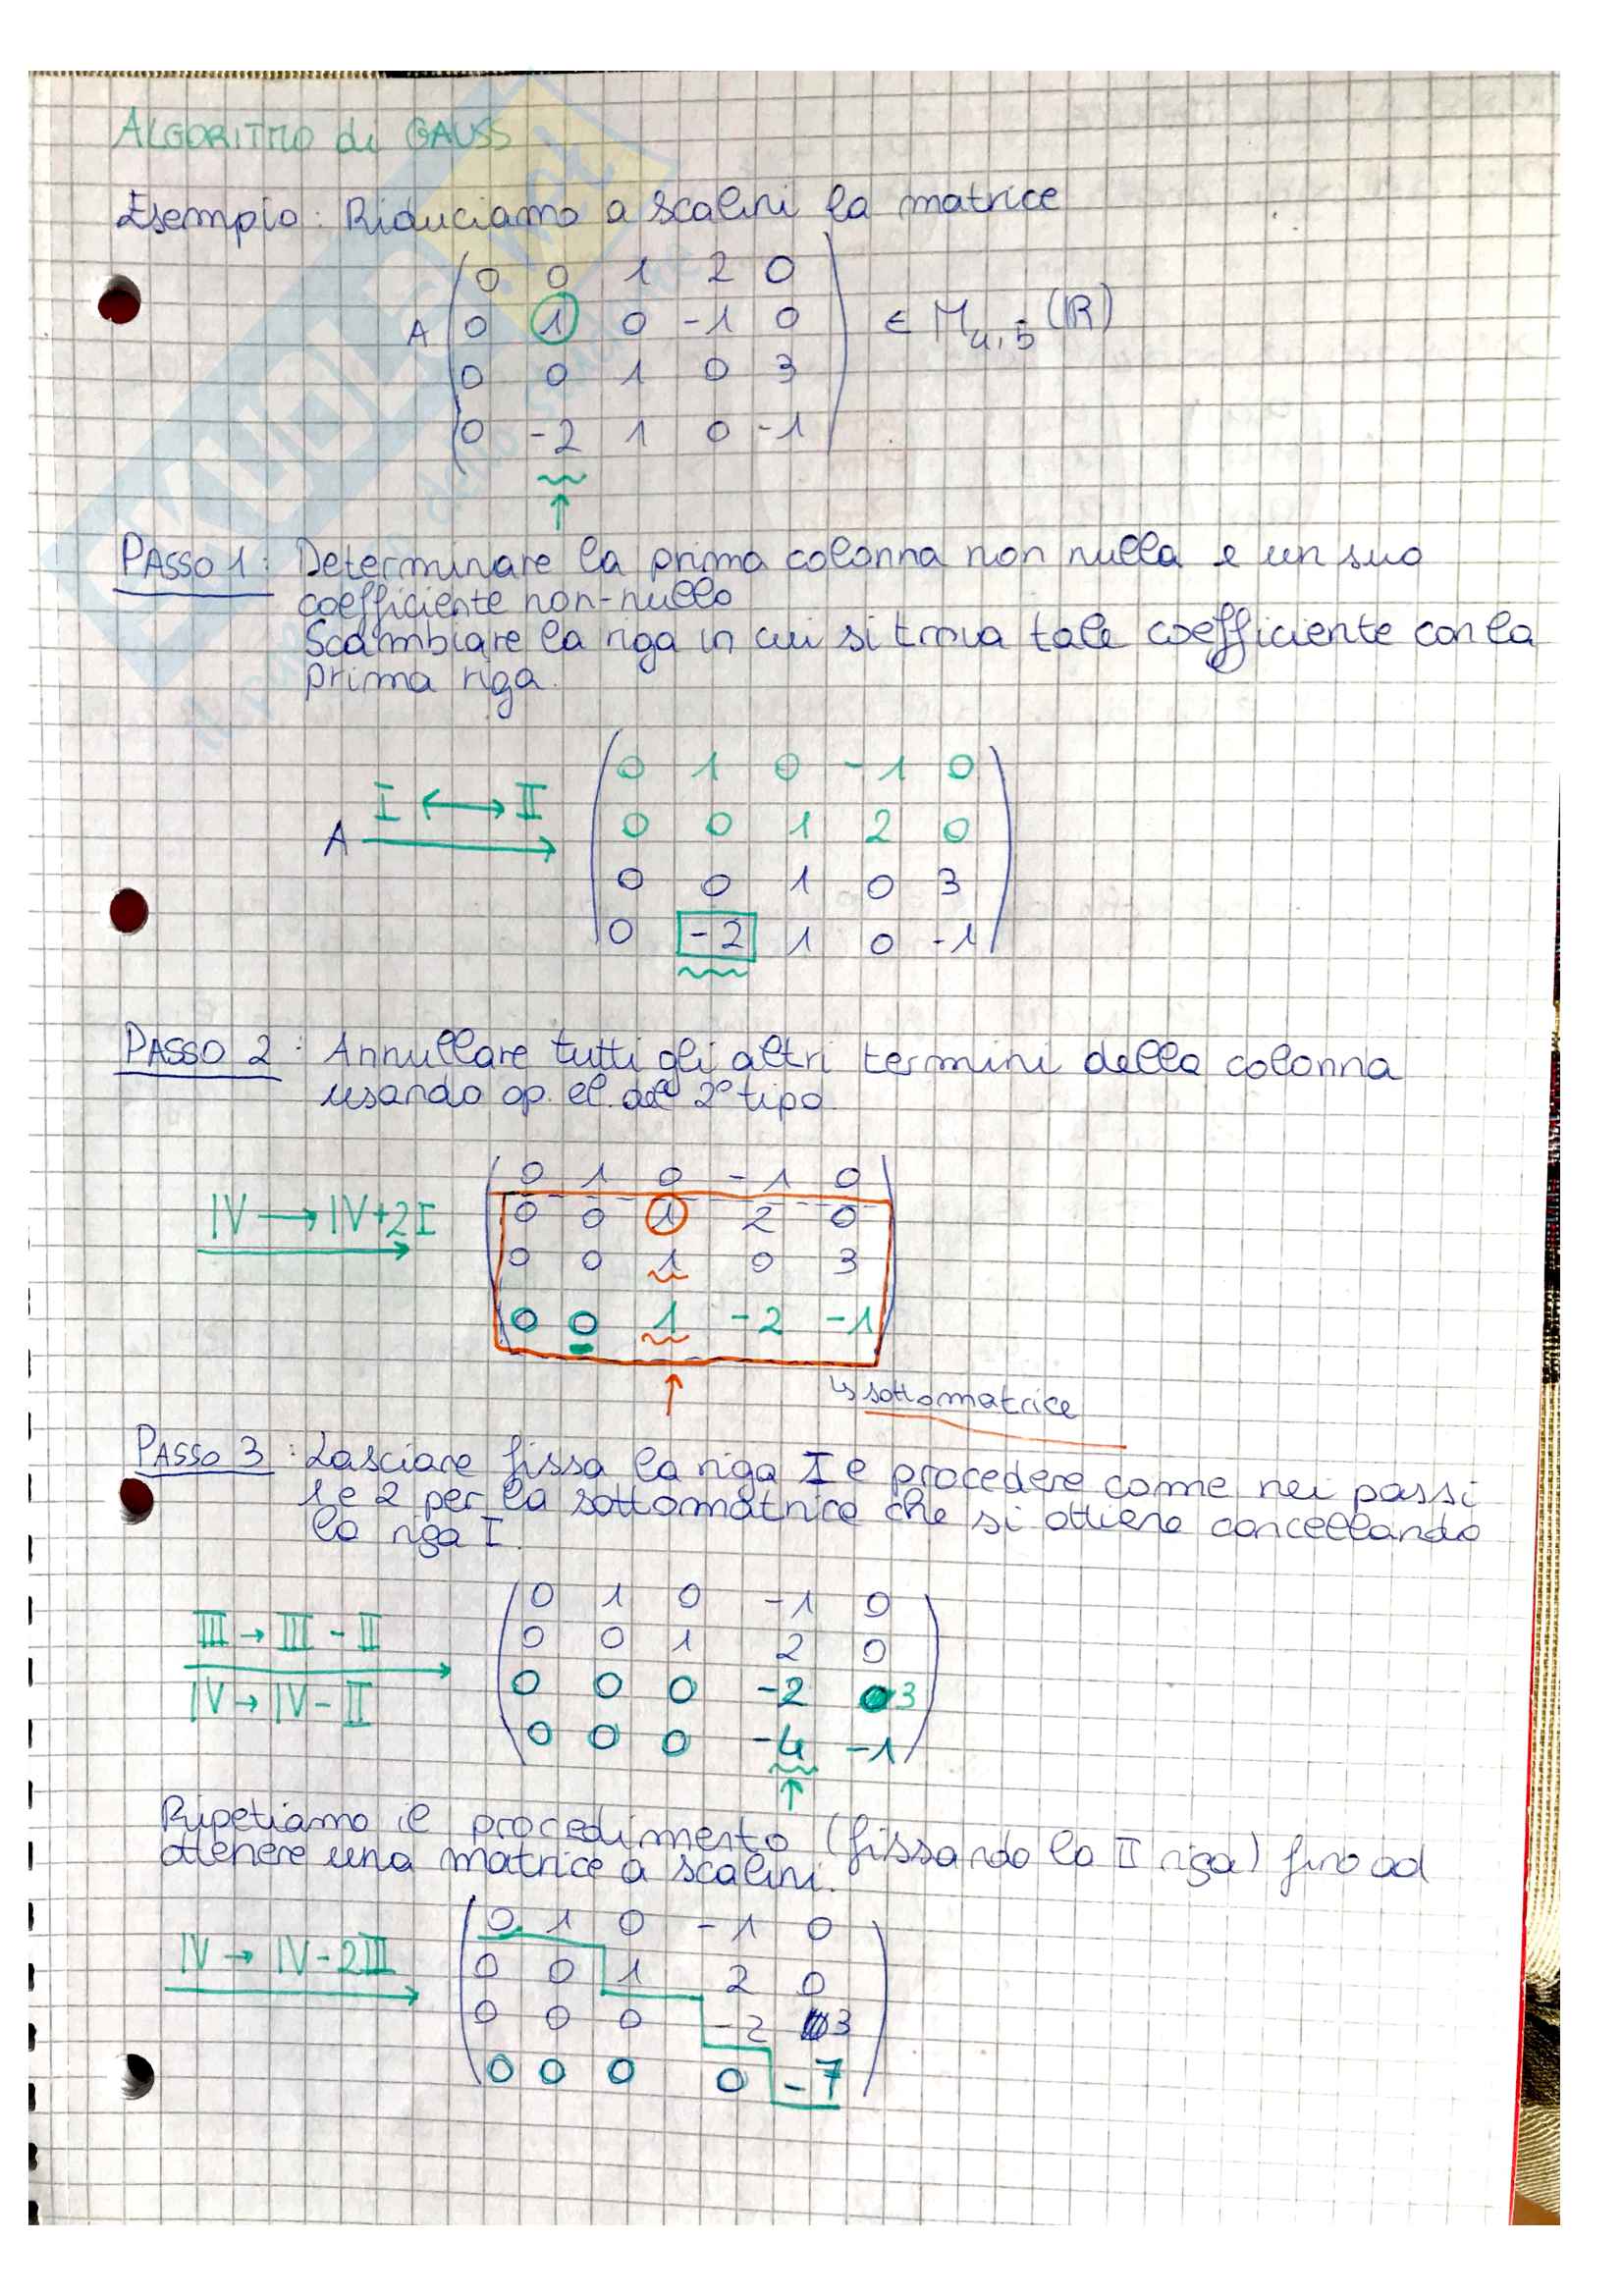 ALGORITMO di GAUSS
Esempio: Riduciamo a scalini la matrice
0 0 1 2 0
A 0 1 0 -1 0 ∈ M4,5 (R)
0 0 1 0 3
0 -2 1 0 -1
↑
PASSO 1: Determinare la prima colonna non nulla e un suo
coefficiente non-nullo
Scambiare la riga in cui si trova tale coefficiente con la
prima riga.
0 1 0 -1 0
A I ↔ II 0 0 1 2 0
0 0 1 0 3
0 -2 1 0 -1
PASSO 2: Annullare tutti gli altri termini della colonna
usando op. el. del 2° tipo
0 1 0 -1 0
IV → IV+2I 0 0 1 2 0
0 0 1 0 3
0 0 1 -2 -1
↑ ↳ sottomatrice
PASSO 3: Lasciare fissa la riga I e procedere come nei passi
1 e 2 per la sottomatrice che si ottiene cancellando
la riga I.
0 1 0 -1 0
III → III - II 0 0 1 2 0
IV → IV - II 0 0 0 -2 3
0 0 0 -4 -1
↑
Ripetiamo il procedimento (fissando la II riga) fino ad
ottenere una matrice a scalini.
0 1 0 -1 0
IV → IV - 2III 0 0 1 2 0
0 0 0 -2 3
0 0 0 0 -7